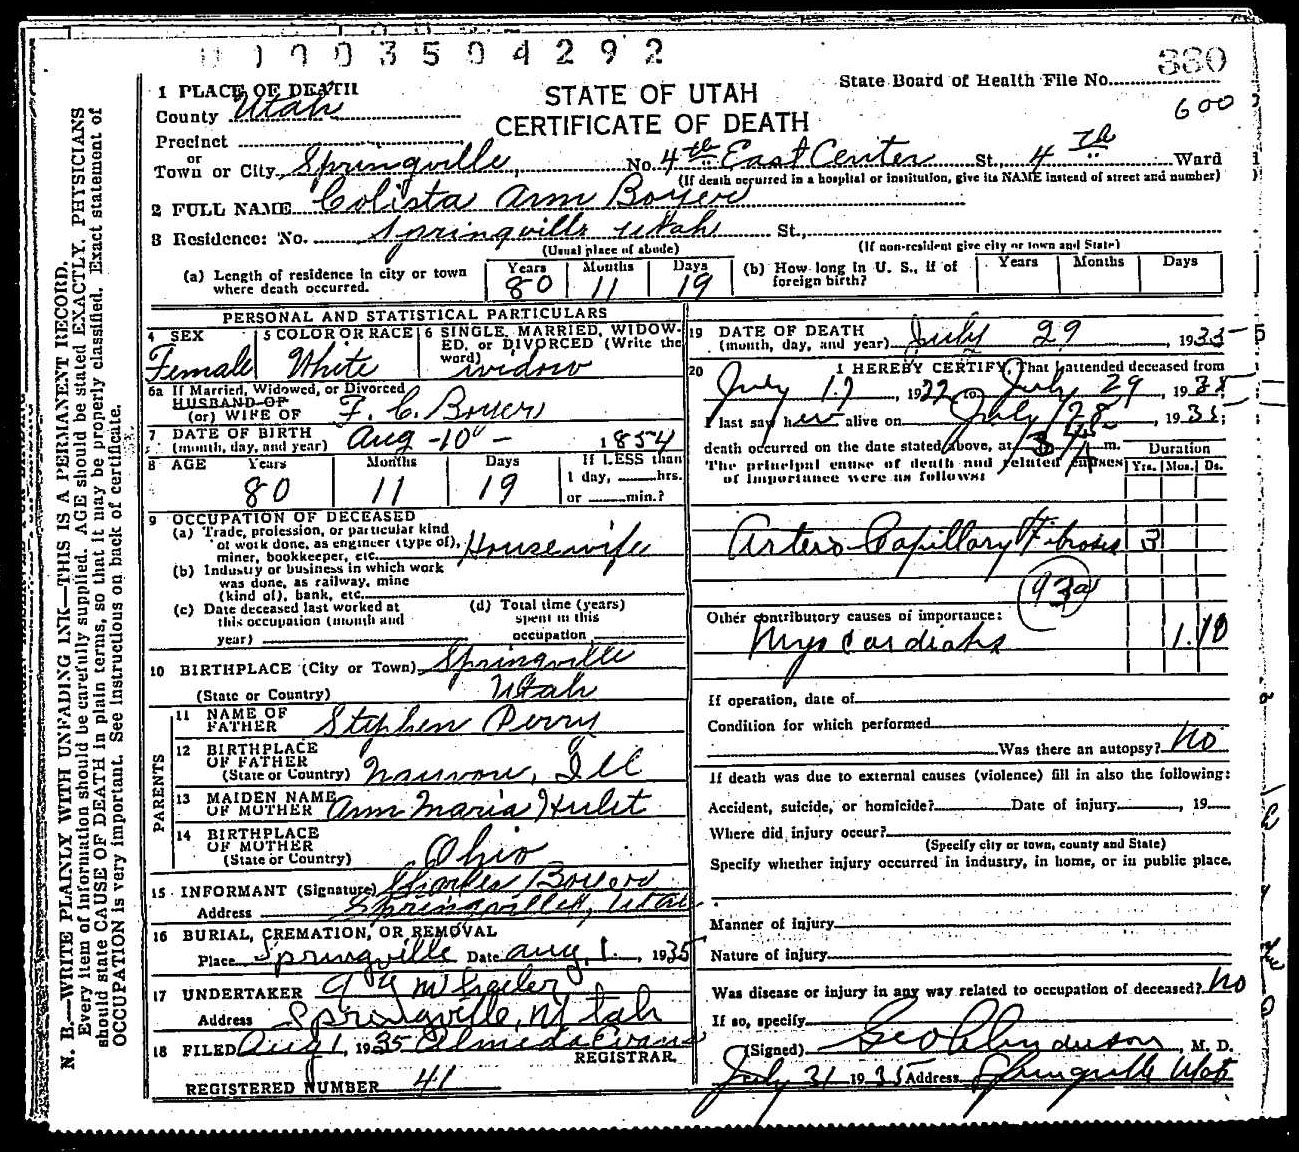 0 1 0 0 3 5 0 4 2 9 2
880
600
State Board of Health File No.
STATE OF UTAH
CERTIFICATE OF DEATH
1 PLACE OF DEATH
County Utah
Precinct
or
Town or City Springville, No. 4th East Center St., 4th Ward
(If death occurred in a hospital or institution, give its NAME instead of street and number)
2 FULL NAME Colista Ann Boyer
3 Residence: No. Springville Utah St.,
(Usual place of abode) (If non-resident give city or town and State)
(a) Length of residence in city or town where death occurred. Years 80 Months 11 Days 19
(b) How long in U. S., if of foreign birth? Years Months Days
PERSONAL AND STATISTICAL PARTICULARS
4 SEX Female
5 COLOR OR RACE White
6 SINGLE, MARRIED, WIDOWED, or DIVORCED (Write the word) widow
6a If Married, Widowed, or Divorced
HUSBAND OF
(or) WIFE OF F. C. Boyer
7 DATE OF BIRTH
(month, day, and year) Aug - 10 - 1854
8 AGE Years 80 Months 11 Days 19 If LESS than 1 day, hrs. or min.?
9 OCCUPATION OF DECEASED
(a) Trade, profession, or particular kind of work done, as engineer (type of), miner, bookkeeper, etc. Housewife
(b) Industry or business in which work was done, as railway, mine (kind of), bank, etc.
(c) Date deceased last worked at this occupation (month and year)
(d) Total time (years) spent in this occupation
10 BIRTHPLACE (City or Town) Springville
(State or Country) Utah
PARENTS
11 NAME OF FATHER Stephen Perry
12 BIRTHPLACE OF FATHER
(State or Country) Nauvoo, Ill
13 MAIDEN NAME OF MOTHER Ann Maria Hulet
14 BIRTHPLACE OF MOTHER
(State or Country) Ohio
15 INFORMANT (Signature) Charles Boyer
Address Springville, Utah
16 BURIAL, CREMATION, OR REMOVAL
Place Springville Date Aug. 1, 1935
17 UNDERTAKER
Address Springville, Utah
18 FILED Aug 1, 1935 Almeda Evans
REGISTRAR.
REGISTERED NUMBER 41
19 DATE OF DEATH
(month, day, and year) July 29 1935
20 I HEREBY CERTIFY, That I attended deceased from
July 17, 1932 to July 29, 1935
I last saw her alive on July 28, 1935;
death occurred on the date stated above, at m.
The principal cause of death and related causes of importance were as follows:
Duration
Yrs. Mos. Ds.
Arterio Capillary Fibrosis 3
93a
Other contributory causes of importance:
Myocardiahs 1. 10
If operation, date of
Condition for which performed
Was there an autopsy? No
If death was due to external causes (violence) fill in also the following:
Accident, suicide, or homicide? Date of injury , 19
Where did injury occur?
(Specify city or town, county and State)
Specify whether injury occurred in industry, in home, or in public place.
Manner of injury
Nature of injury
Was disease or injury in any way related to occupation of deceased? No
If so, specify
(Signed) Geo Anderson, M. D.
July 31 1935 Address Springville Utah
N. B.—WRITE PLAINLY WITH UNFADING INK—THIS IS A PERMANENT RECORD.
Every item of information should be carefully supplied. AGE should be stated EXACTLY. PHYSICIANS
should state CAUSE OF DEATH in plain terms, so that it may be properly classified. Exact statement of
OCCUPATION is very important. See instructions on back of certificate.